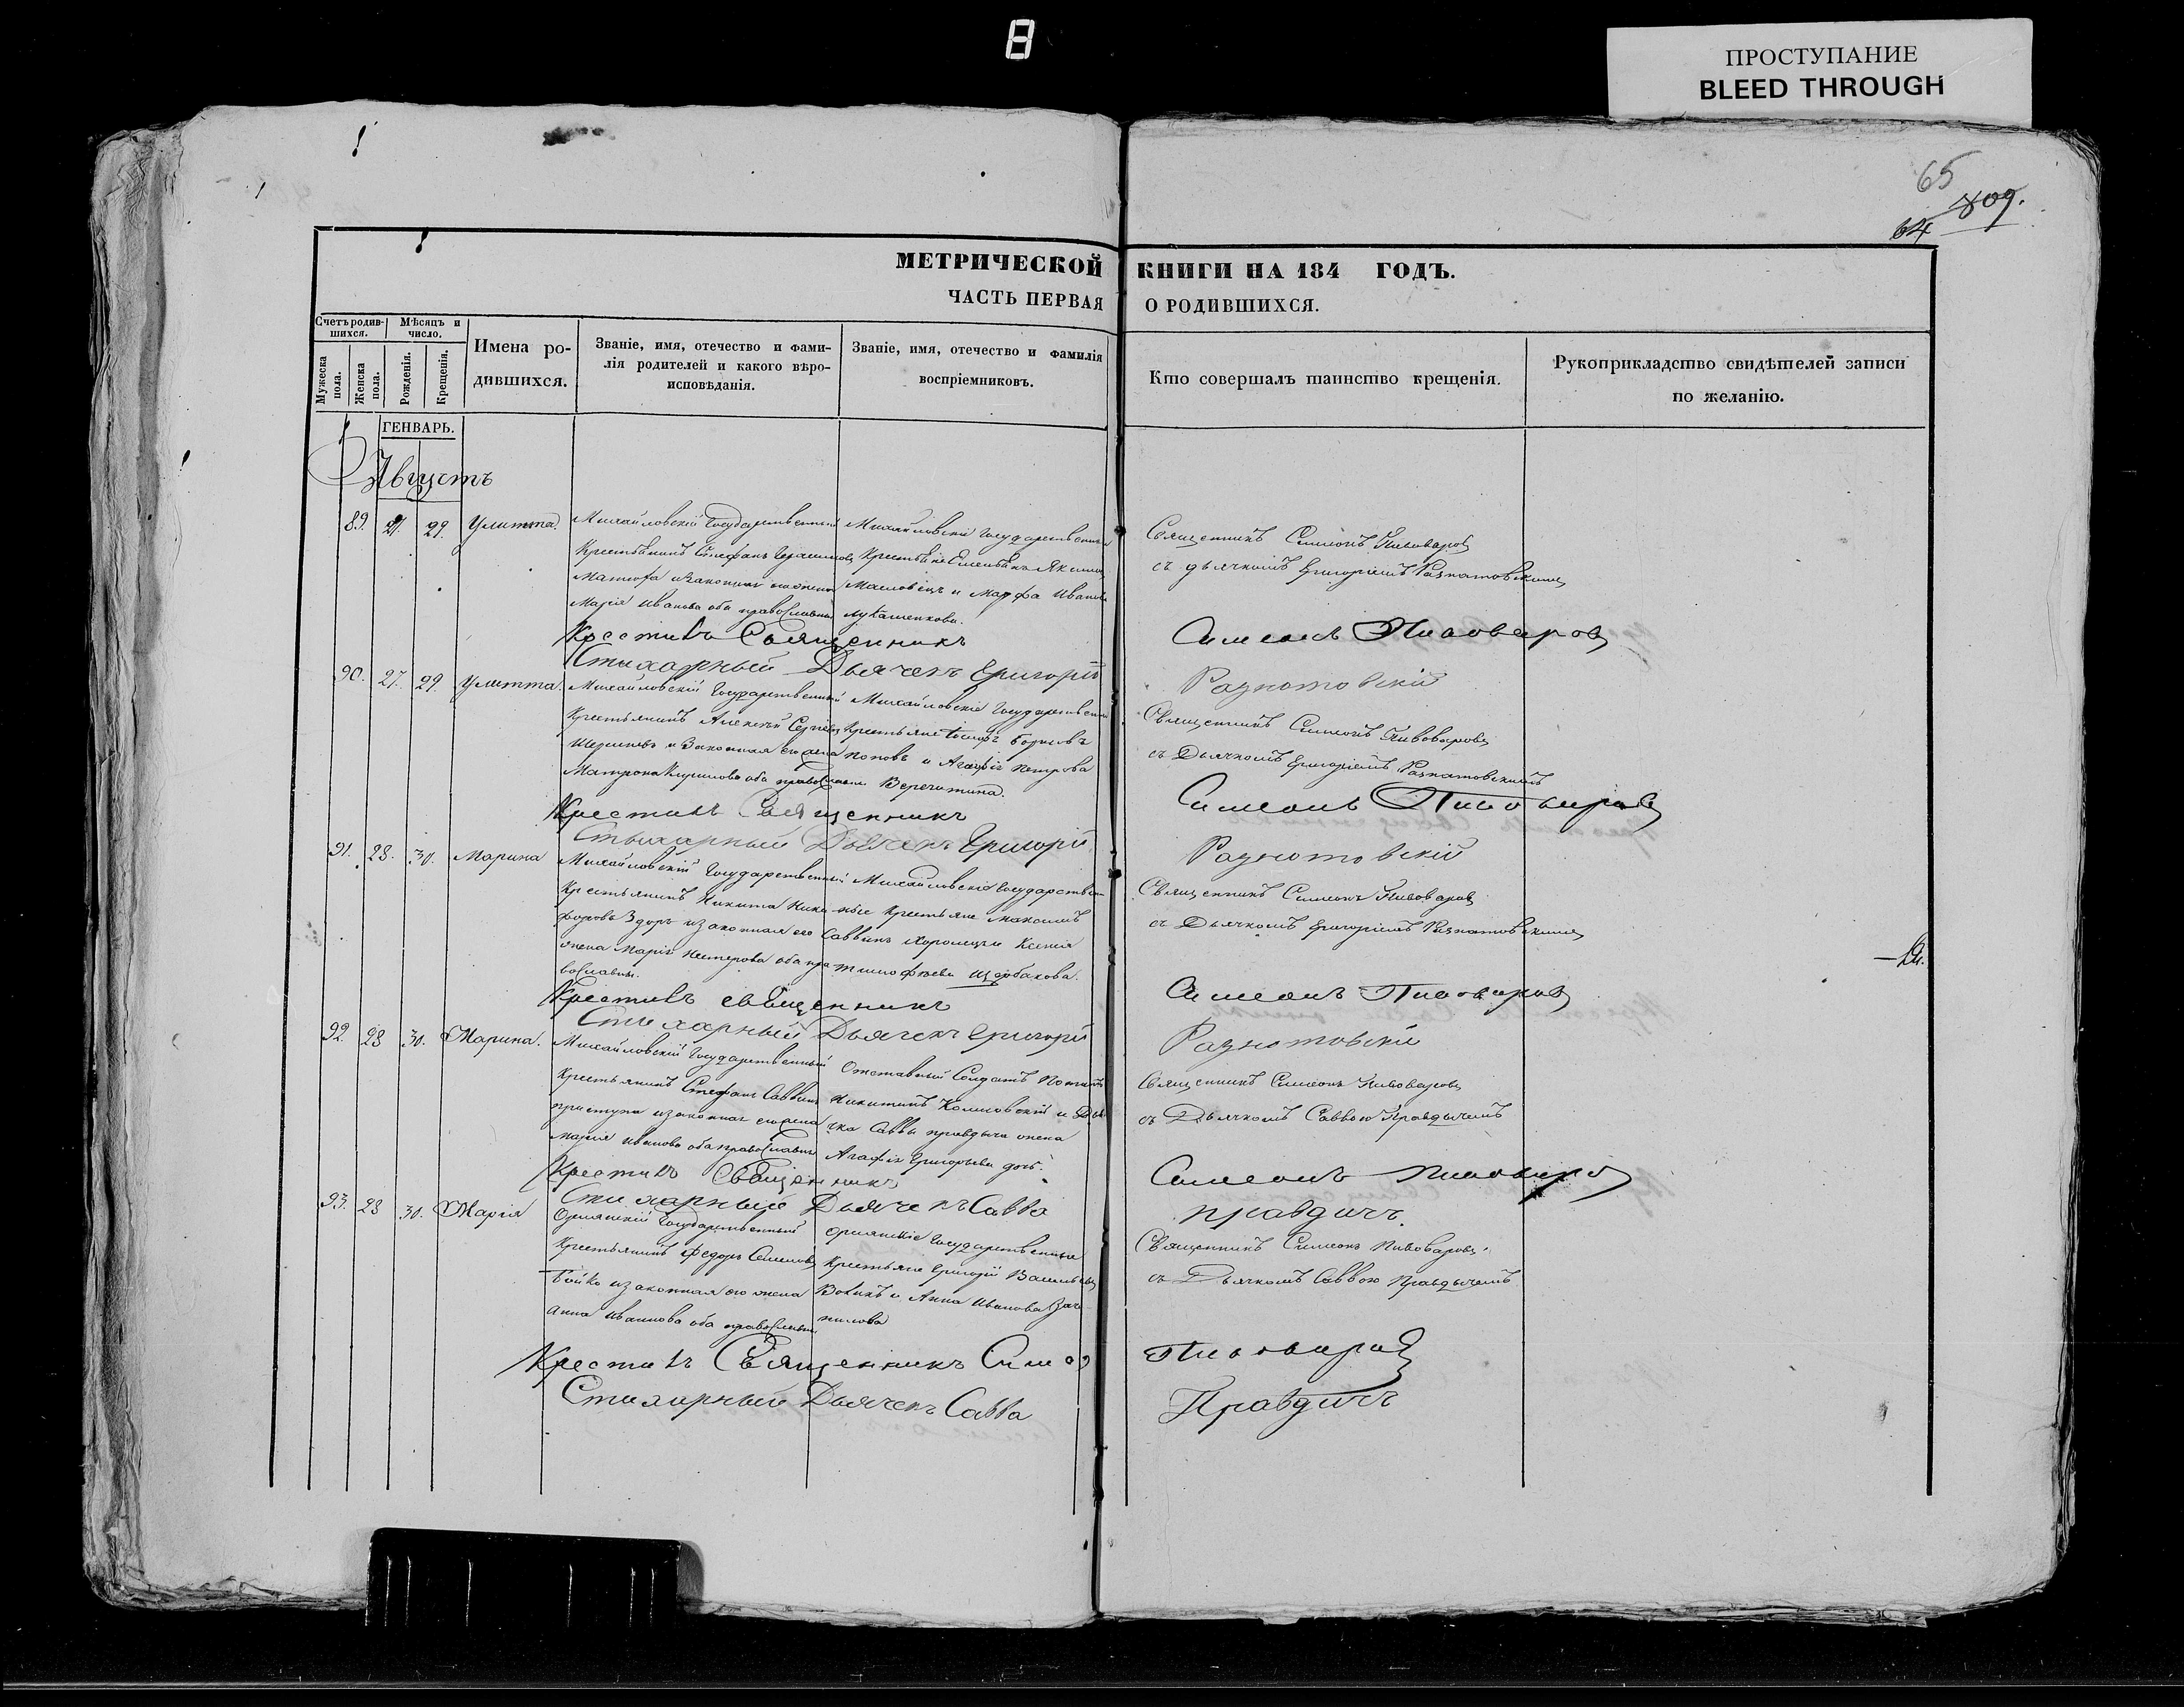 8
ПРОСТУПАНИЕ
BLEED THROUGH
65
809.
64
МЕТРИЧЕСКОЙ КНИГИ НА 184 ГОДЪ.
ЧАСТЬ ПЕРВАЯ О РОДИВШИХСЯ.
Счетъ родив-
шихся.
Мѣсяцъ и
число.
Мужеска
пола.
Женска
пола.
Рожденія.
Крещенія.
Имена ро-
дившихся.
Званіе, имя, отечество и фами-
лія родителей и какого вѣро-
исповѣданія.
Званіе, имя, отечество и фамилія
воспріемниковъ.
Кто совершалъ таинство крещенія.
Рукоприкладство свидѣтелей записи
по желанію.
ГЕНВАРЬ.
Августъ
89. 29. Улитта.
Михайловскій Государственный
Крестьянинъ Стефанъ
и законная
Марія Иванова оба православны
Михайловскіе Государственные
и Марфа Иванова
Лукашенкова.
Священникъ Симеонъ Пивоваровъ
съ дьячкомъ Григоріемъ Разнатовскимъ
Крестилъ Священникъ Симеонъ Пивоваровъ
Стихарный Дьячекъ Григорій Разнатовскій
90. 27. 29. Улитта.
Михайловскій Государственный
Крестьянинъ Алексѣй Сергѣевъ
и Законная его жена
Матрона Кирилова оба православны
Михайловскіе Государственные
Крестьяне
Поповъ и Агафія Петрова
Веречитина.
Священникъ Симеонъ Пивоваровъ
съ Дьячкомъ Григоріемъ Разнатовскимъ
Крестилъ Священникъ Симеонъ Пивоваровъ
Стихарный Дьячекъ Григорій Разнатовскій
91. 28. 30. Марина
Михайловскій Государственный
Крестьянинъ Никита Ники-
форовъ Здоръ и законная его
жена Марія Нестерова оба пра-
вославны.
Михайловскіе Государствен-
ные Крестьяне Максимъ
Саввинъ Хоролецъ и Ксенія
Тимофѣева Щербакова.
Священникъ Симеонъ Пивоваровъ
съ Дьячкомъ Григоріемъ Разнатовскимъ
Крестилъ священникъ Симеонъ Пивоваровъ
Стихарный Дьячекъ Григорій Разнатовскій
92. 28 30. Марина.
Михайловскій Государственный
Крестьянинъ Стефанъ Саввинъ
Приступа и законная его жена
Марія Иванова оба православны
Отставный Солдатъ
Никитинъ и Дья-
чка Саввы Правдича жена
Агафія Григорьева дочь.
Священникъ Симеонъ Пивоваровъ
съ Дьячкомъ Саввою Правдичемъ
Крестилъ Священникъ Симеонъ Пивоваровъ
Стихарный Дьячекъ Савва Правдичъ.
93. 28 30. Марія
Государственный
Крестьянинъ Федоръ Семеновъ
Бойко и законная его жена
Анна Иванова оба православны
Государственные
Крестьяне Григорій Васильевъ
и Анна Иванова
Священникъ Симеонъ Пивоваровъ.
съ Дьячкомъ Саввою Правдичемъ
Крестилъ Священникъ Симеонъ Пивоваровъ
Стихарный Дьячекъ Савва Правдичъ